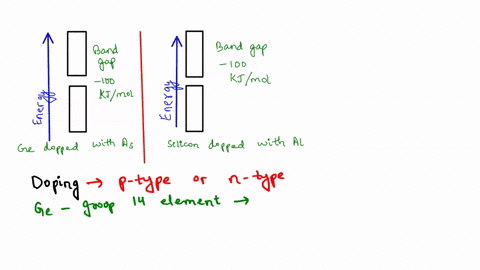 Energy
Band
gap
-100
KJ/mol
Ge dopped with As
Energy
Band gap
-100
KJ/mol
Silicon dopped with Al
Doping → p-type or n-type
Ge - group 14 element →